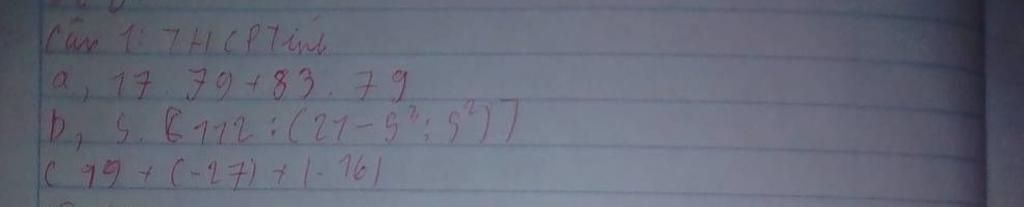 Câu 1: THCPTính
a, 17. 79 + 83. 79
b, 5. [112 : (21 - 5³ : 5²)]
c 99 + (-27) + |-16|